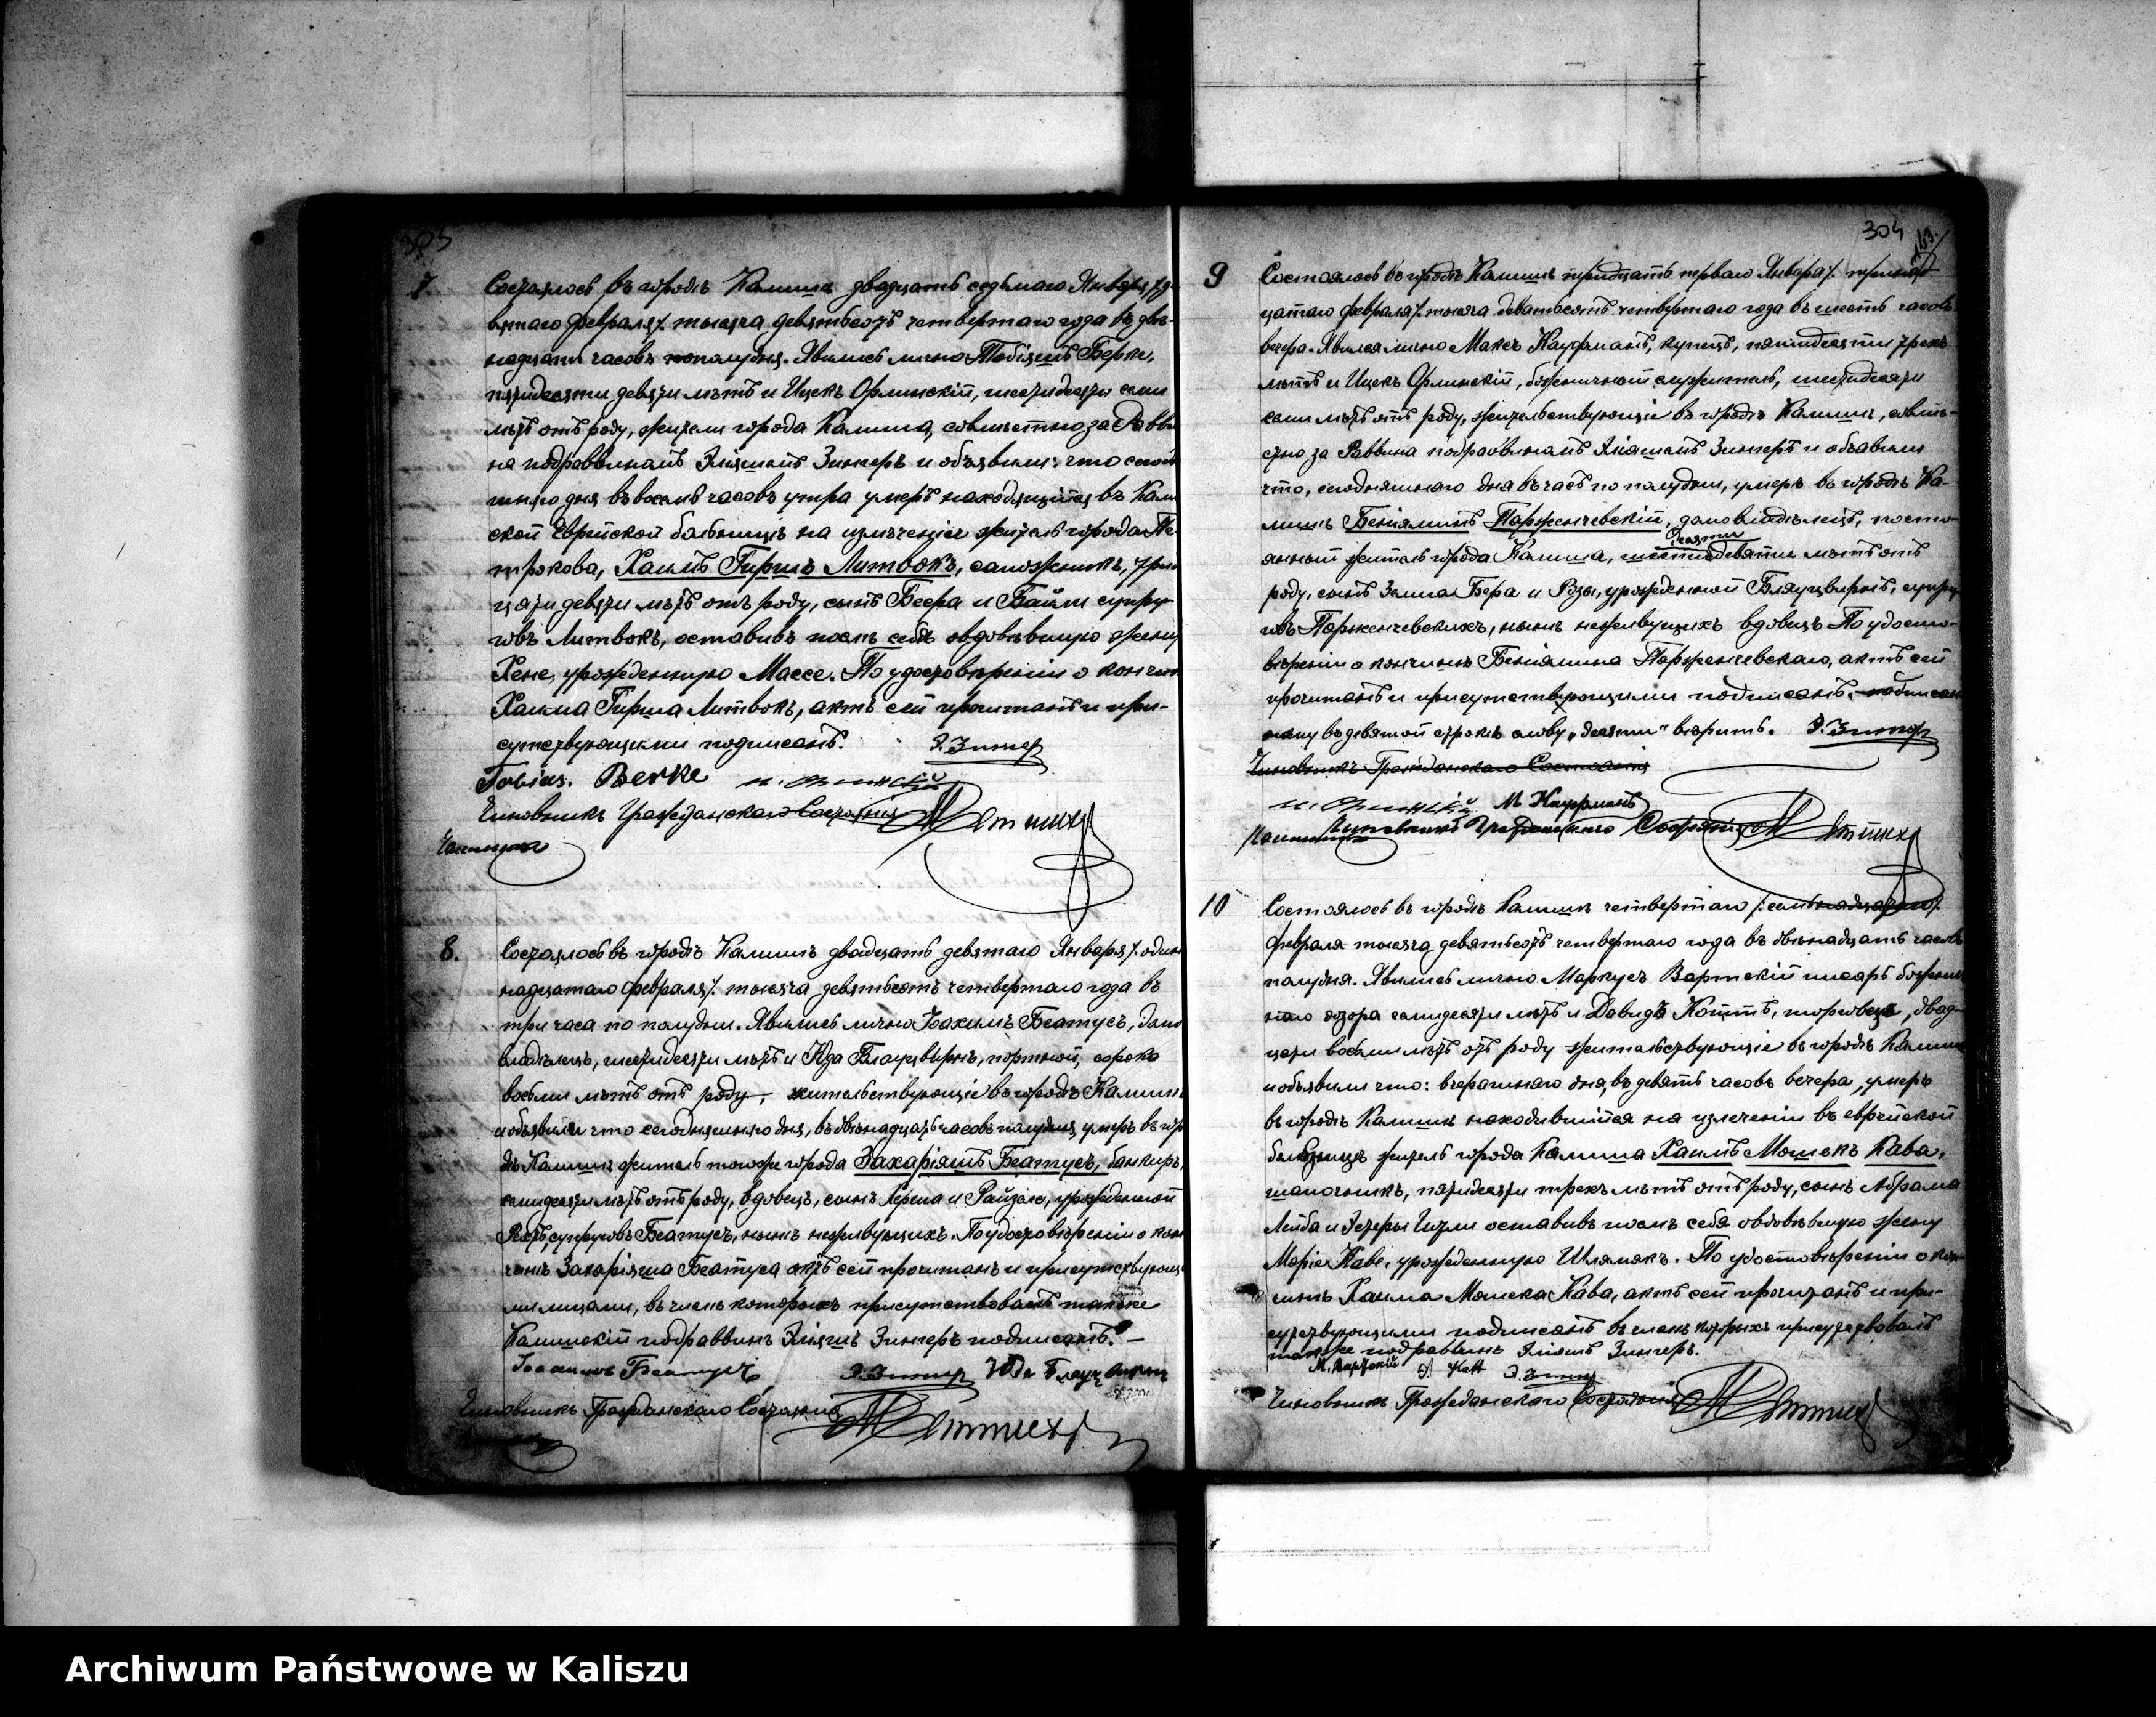 303
7.
Состоялось въ городѣ Калишѣ двадцать седьмаго Января /:де
вятаго Февраля:/ тысяча девятьсотъ четвертаго года въ двѣ-
надцать часовъ пополудня. Явились лично Тобіяшъ Берке,
пятидесяти девяти лѣтъ и Ицекъ Орлинскій, шестидесяти семи
лѣтъ отъ роду, жители города Калиша, совмѣстно за Равви
на подраввинъ Эліяшъ Зингеръ и объявили: что сегод
няшняго дня въ восемь часовъ утра умеръ находящійся въ Кали
ской Еврейской больницѣ на излѣченіи житель города Пе
трокова, Хаимъ Гиршъ Литвокъ, сапожникъ, трид
цати девяти лѣтъ отъ роду, сынъ Беера и Байли супру
говъ Литвокъ, оставивъ послѣ себя овдовѣвшую жену
Хене, урожденную Массе. По удостовѣреніи о кончинѣ
Хаима Гирша Литвокъ, актъ сей прочитанъ и при-
сутствующими подписанъ. Э. Зингер
Tobias. Berke
Чиновникъ Гражданскаго Состоянія
8.
Состоялось въ городѣ Калишѣ двадцать девятаго Января /:один
надцатаго Февраля:/ тысяча девятьсотъ четвертаго года въ
три часа по полудни. Явились лично Іоахимъ Беатусъ, домо
владѣлецъ, шестидесяти лѣтъ и Юда Блауцвирнъ, портной, сорока
восьми лѣтъ отъ роду, жительствующіе въ городѣ Калишѣ
и объявили что сегодняшняго дня, въ двѣнадцать часовъ полудня, умеръ въ горо
дѣ Калишѣ житель тогоже города Захаріяшъ Беатусъ, банкиръ,
семидесяти лѣтъ отъ роду, вдовецъ, сынъ Герша и Райзли, урожденной
супруговъ Беатусъ, нынѣ неживущихъ. По удостовѣреніи о кон
чинѣ Захаріяша Беатуса актъ сей прочитанъ и присутствующи
ми лицами, въ числѣ которыхъ присутствовалъ также
Калишскій подраввинъ Эліяшъ Зингеръ подписанъ. —
Іоахимъ Беатусъ Э. Зингер Юда Блауцвирнъ
Чиновникъ Гражданскаго Состоянія
304
163.
9
Состоялось въ городѣ Калишѣ тридцать перваго Января /: тринад
цатаго Февраля:/ тысяча девятьсотъ четвертаго года въ шесть часовъ
вечера. Явился лично Максъ Кауфманъ, купецъ, пятидесяти трехъ
лѣтъ и Ицекъ Орлинскій, божничный служитель, шестидесяти
семи лѣтъ отъ роду, жительствующіе въ городѣ Калишѣ, совмѣ-
стно за Раввина подраввинъ Эліяшъ Зингеръ и объявили
что, сегодняшняго дня въ часъ по полудни, умеръ въ городѣ Ка-
лишѣ Беніяминъ Парженчевскій, домовладѣлецъ, посто-
янный житель города Калиша, шестидесяти девяти лѣтъ отъ
роду, сынъ Бера и Розы, урожденной Блауцвирнъ, супру
говъ Парженчевскихъ, нынѣ неживущихъ вдовецъ По удосто-
вѣреніи о кончинѣ Беніямина Парженчевскаго, актъ сей
прочитанъ и присутствующими подписанъ,
въ девятой строкѣ слову „десяти“ вѣрить. Э. Зингер
Чиновникъ Гражданскаго Состоянія
М Кауфманъ
Чиновникъ Гражданскаго Состоянія
10
Состоялось въ городѣ Калишѣ четвертаго /:семьнадцатаго:/
Февраля тысяча девятьсотъ четвертаго года въ двѣнадцать часовъ
полудня. Явились лично Маркусъ Вартскій писарь божнич
наго дозора семидесяти лѣтъ и Давидъ Коттъ, торговецъ, двад-
цати восьми лѣтъ отъ роду жительствующіе въ городѣ Калишѣ
и объявили что: вчерашняго дня, въ девять часовъ вечера, умеръ
въ городѣ Калишѣ находившійся на излеченіи въ еврейской
больницѣ житель города Калиша Хаимъ Мошекъ Кава,
шапочникъ, пятидесяти трехъ лѣтъ отъ роду, сынъ Абрама
Лейба и Эстеры Итли оставивъ послѣ себя овдовѣвшую жену
Марію Каве, урожденную Шлямякъ. По удостовѣреніи о кон-
чинѣ Хаима Мошека Кава, актъ сей прочитанъ и при-
сутствующими подписанъ въ числѣ которыхъ присутствовалъ
также подраввинъ Эліяшъ Зингеръ.
М. Вартскій Э. Зингер
Чиновникъ Гражданскаго Состоянія
Archiwum Państwowe w Kaliszu